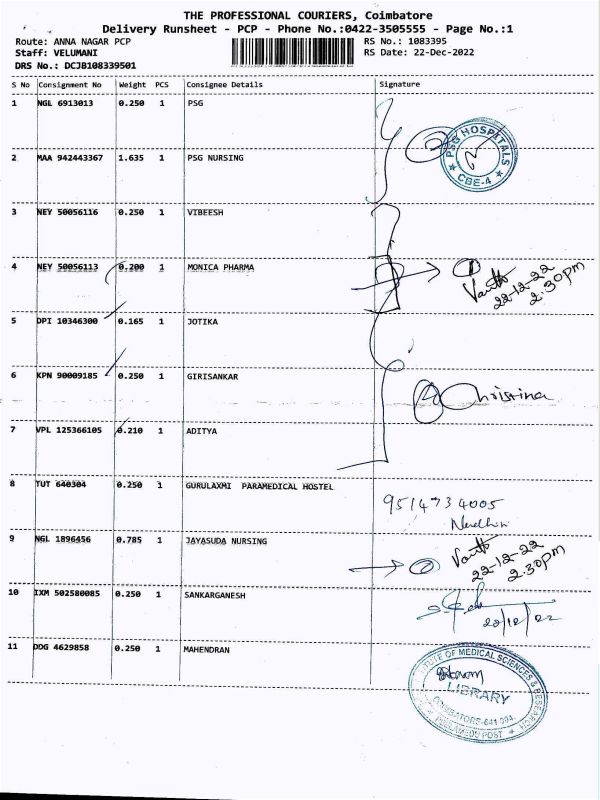 THE PROFESSIONAL COURIERS, Coimbatore
Delivery Runsheet - PCP - Phone No.:0422-3505555 - Page No.:1
Route: ANNA NAGAR PCP RS No.: 1083395
Staff: VELUMANI RS Date: 22-Dec-2022
DRS No.: DCJB108339501
S No Consignment No Weight PCS Consignee Details Signature
1 NGL 6913013 0.250 1 PSG
PSG HOSPITALS
CBE-4
2 MAA 942443367 1.635 1 PSG NURSING
3 NEY 50056116 0.250 1 VIBEESH
4 NEY 50056113 0.200 1 MONICA PHARMA
22-12-22
2.30pm
5 DPI 10346300 0.165 1 JOTIKA
6 KPN 90009185 0.250 1 GIRISANKAR
Christina
7 VPL 125366105 0.210 1 ADITYA
8 TUT 640304 0.250 1 GURULAXMI PARAMEDICAL HOSTEL
9514734005
9 NGL 1896456 0.785 1 JAYASUDA NURSING
22-12-22
2.30pm
10 IXM 502580085 0.250 1 SANKARGANESH
11 DDG 4629858 0.250 1 MAHENDRAN
OF MEDICAL SCIENCES & RESEARCH
LIBRARY
PEELAMEDU POST